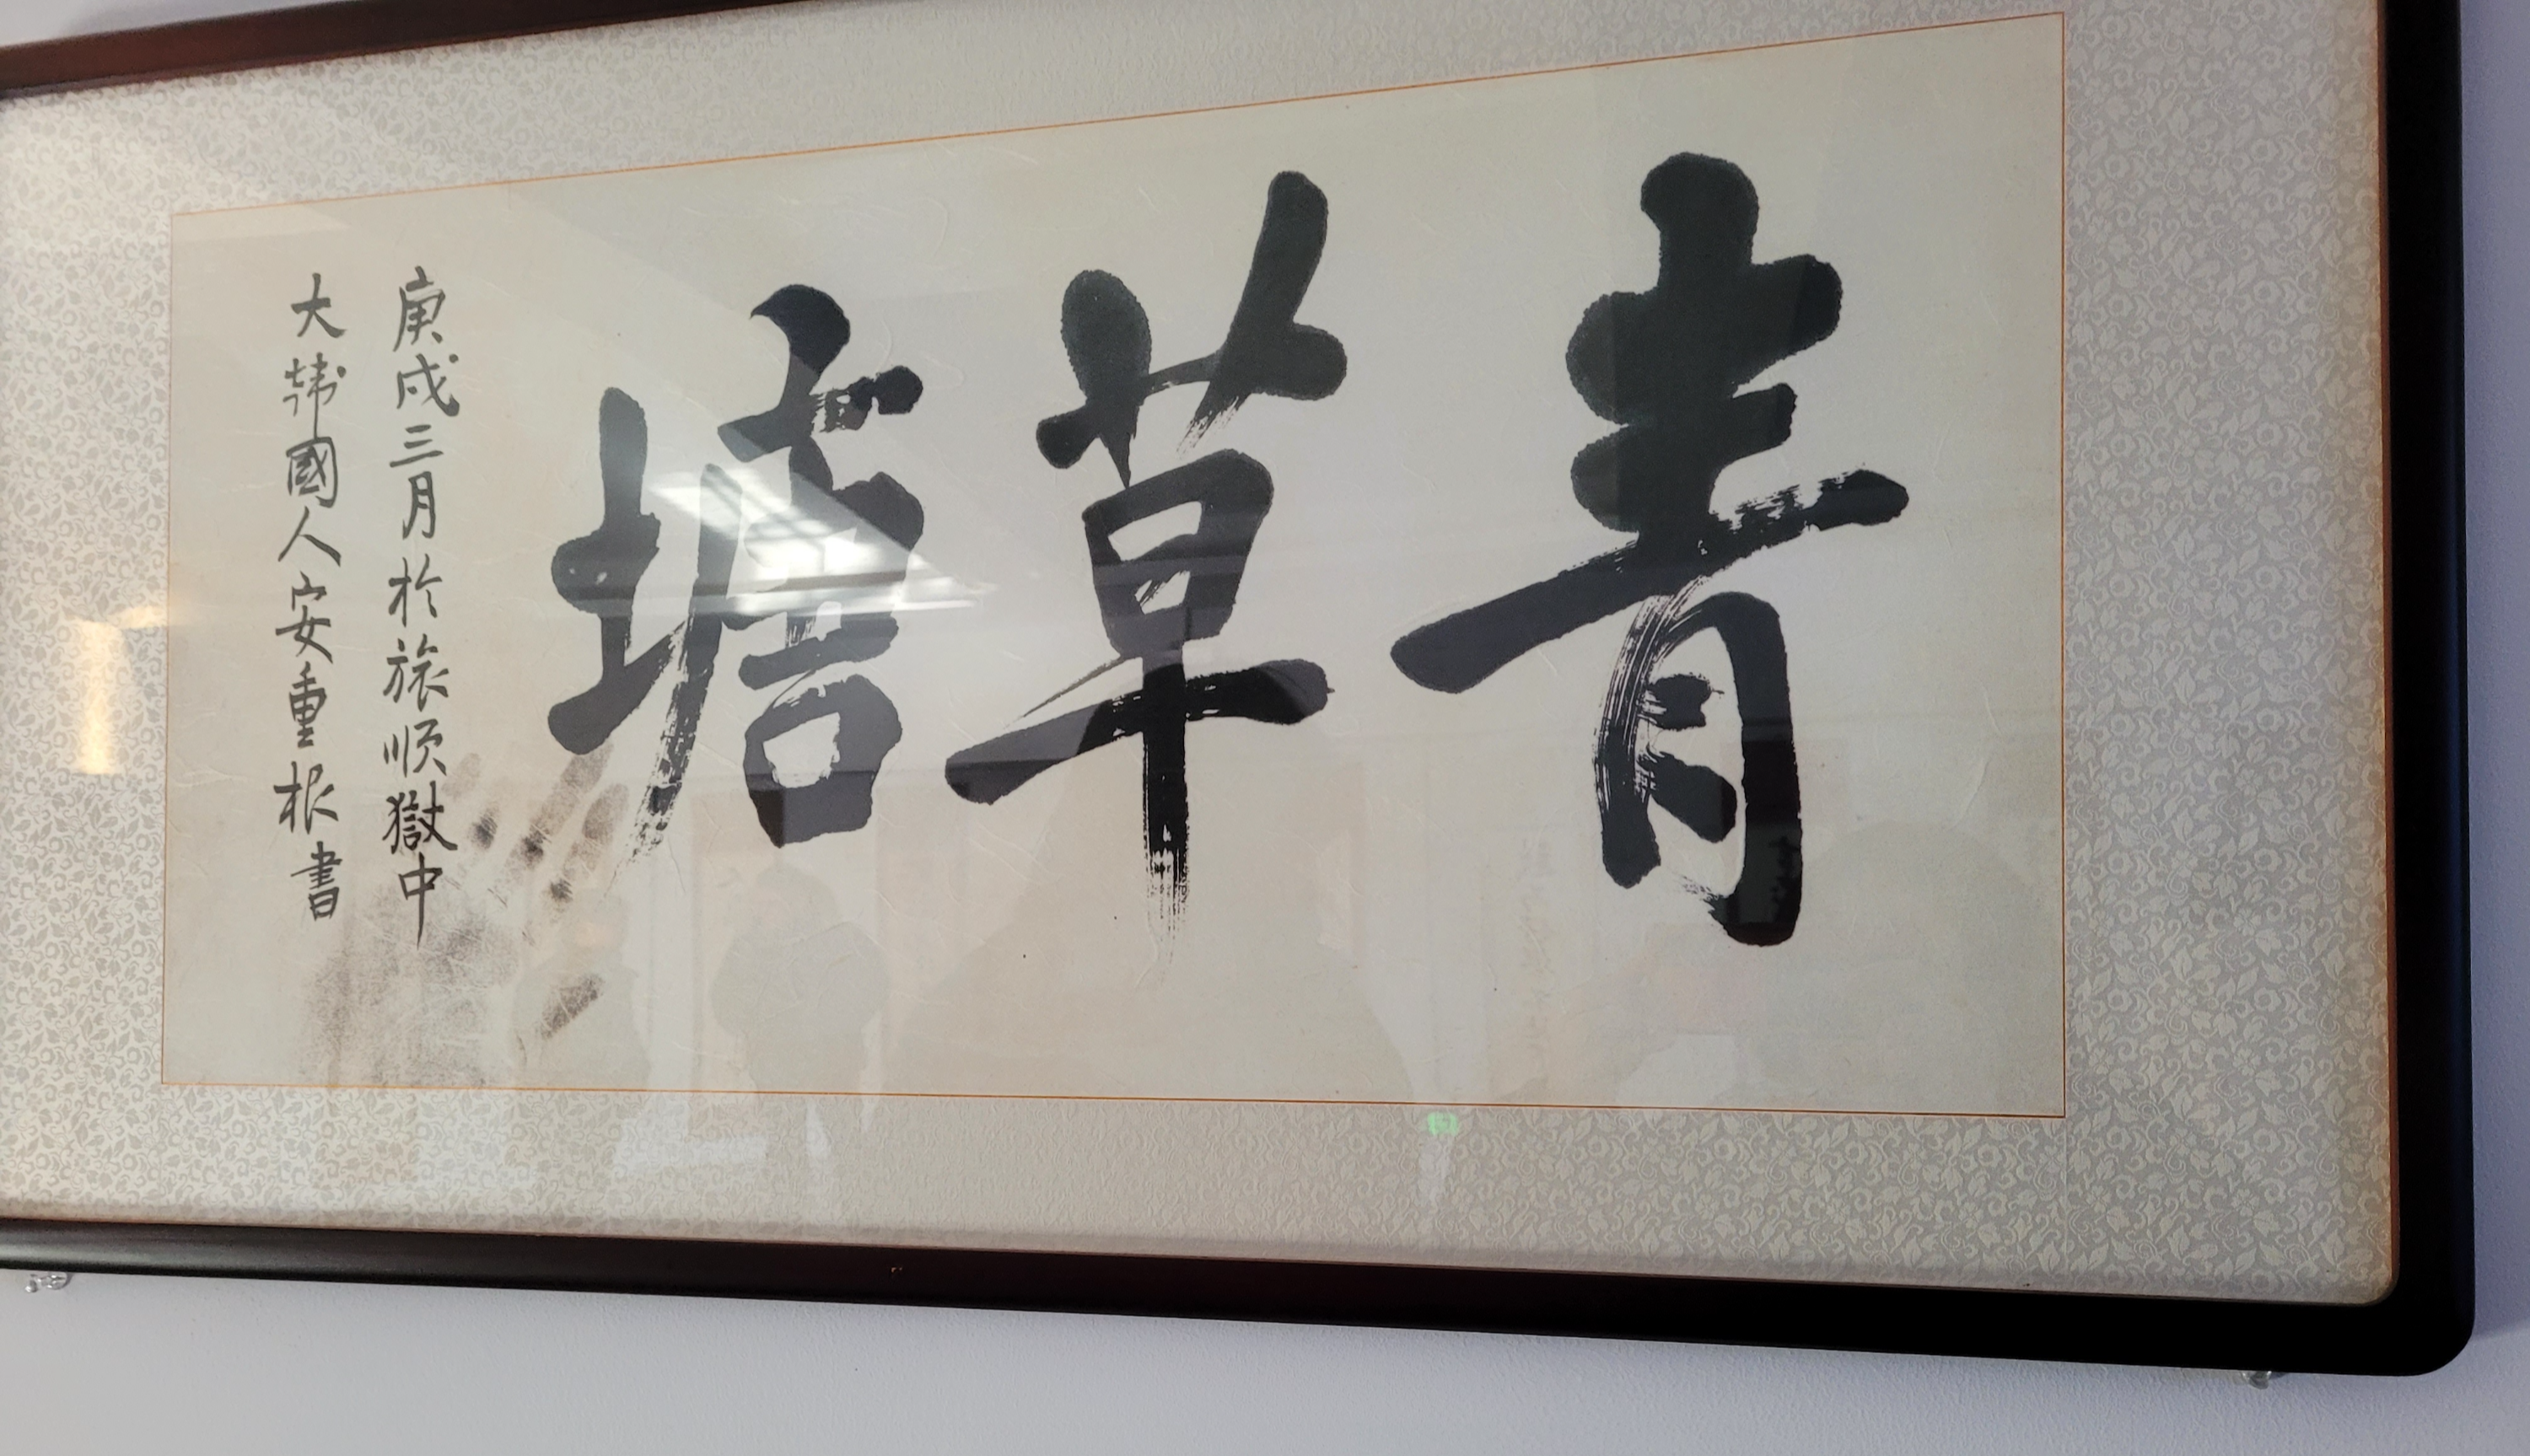 青草塘
庚戌三月於旅順獄中
大韓國人安重根書